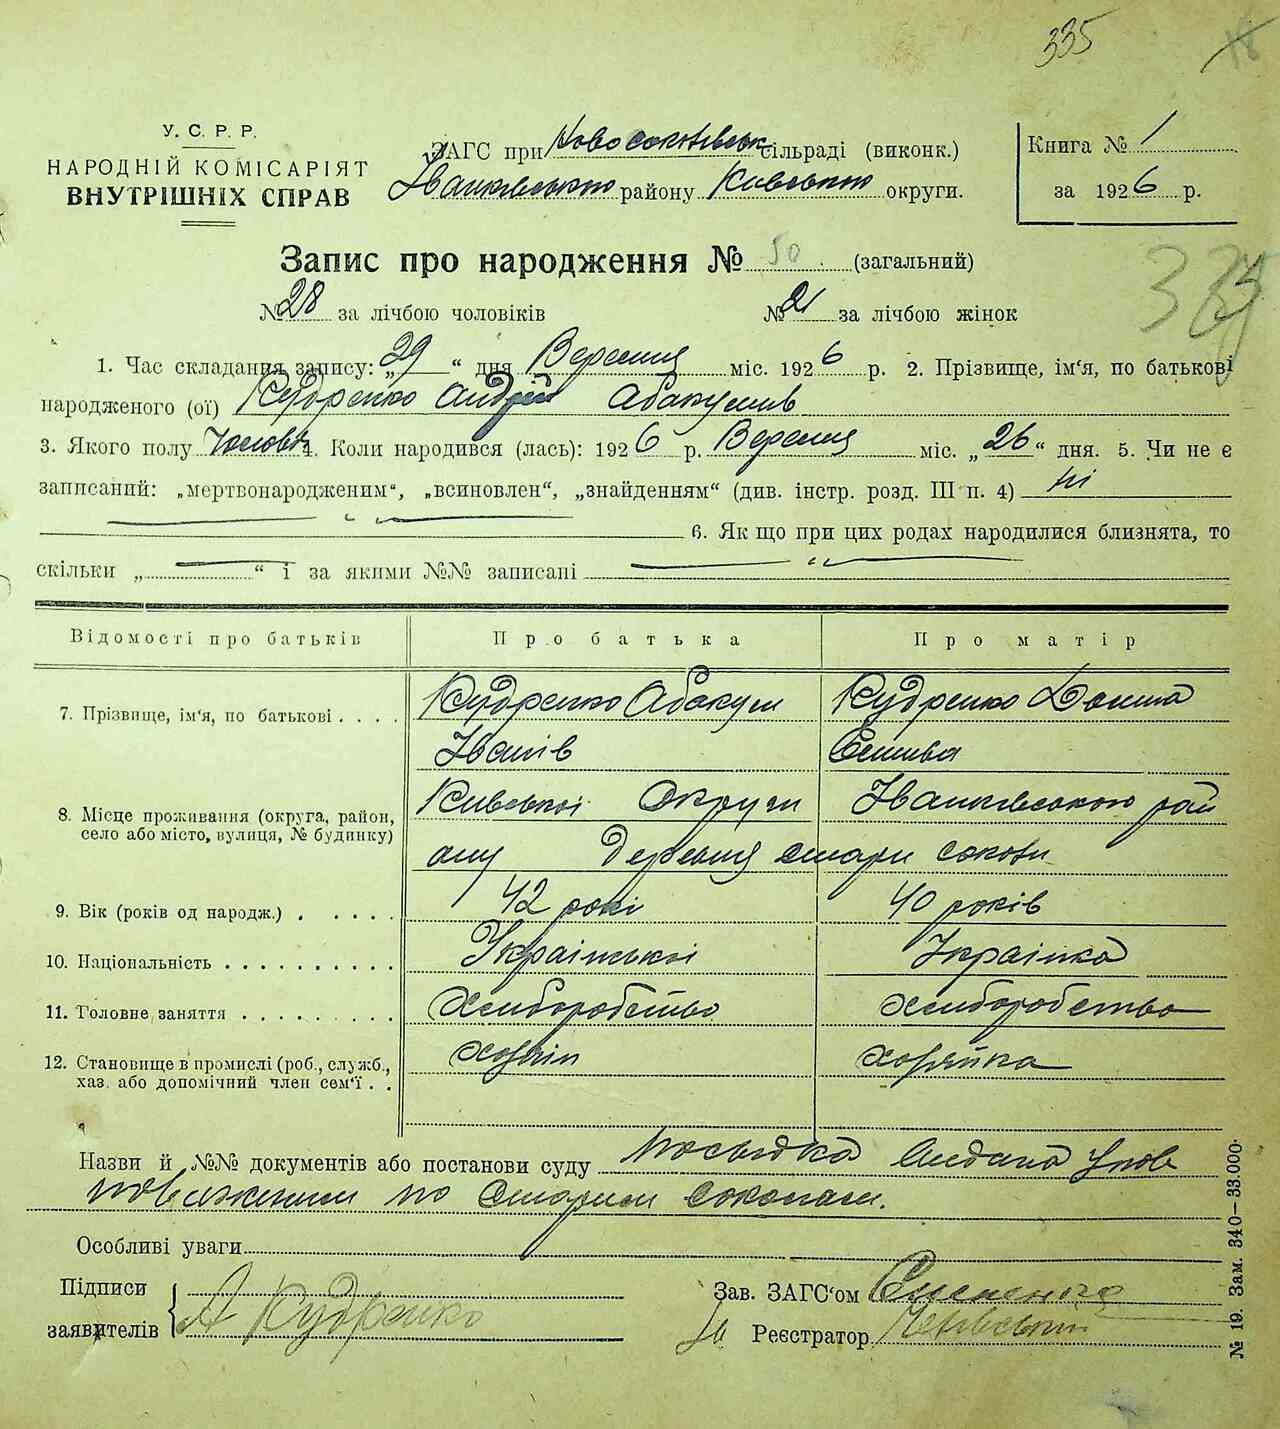 335
У. С. Р. Р.
НАРОДНІЙ КОМІСАРІЯТ
ВНУТРІШНІХ СПРАВ
ЗАГС при Новосоколівськ сільраді (виконк.)
Іванківського району Київської округи.
Книга № 1
за 1926 р.
Запис про народження № 50 (загальний)
№ 28 за лічбою чоловіків № за лічбою жінок
1. Час складання запису: „29“ дня Вересня міс. 1926 р. 2. Прізвище, ім'я, по батькові
народженого (ої) Кудренко Андрій Абакумів
3. Якого полу Чоловіч 4. Коли народився (лась): 1926 р. Вересня міс. „26“ дня. 5. Чи не є
записаний: „мертвонародженим“, „всиновлен“, „знайденням“ (див. інстр. розд. III п. 4) ні
6. Як що при цих родах народилися близнята, то
скільки „ “ і за якими №№ записані
Відомості про батьків Про батька Про матір
7. Прізвище, ім'я, по батькові . . . . Кудренко Абакум Кудренко
Іванів
8. Місце проживання (округа, район, село або місто, вулиця, № будинку) Київської Округи Іванківського рай
ону Деревня стари соколи
9. Вік (років од народж.) . . . . . 42 рокі 40 років
10. Національність . . . . . . . . . . Української Українка
11. Головне заняття . . . . . . . . . Хліборобство Хліборобство
12. Становище в промислі (роб., служб., хаз. або допомічний член сем'ї . . хозяїн хозяйка
Назви й №№ документів або постанови суду видана Упов
новаженим по Старим соколам.
Особливі уваги
Підписи
заявителів
А Кудренко
Зав. ЗАГС'ом
Реєстратор
№ 19. Зам. 340–33.000.